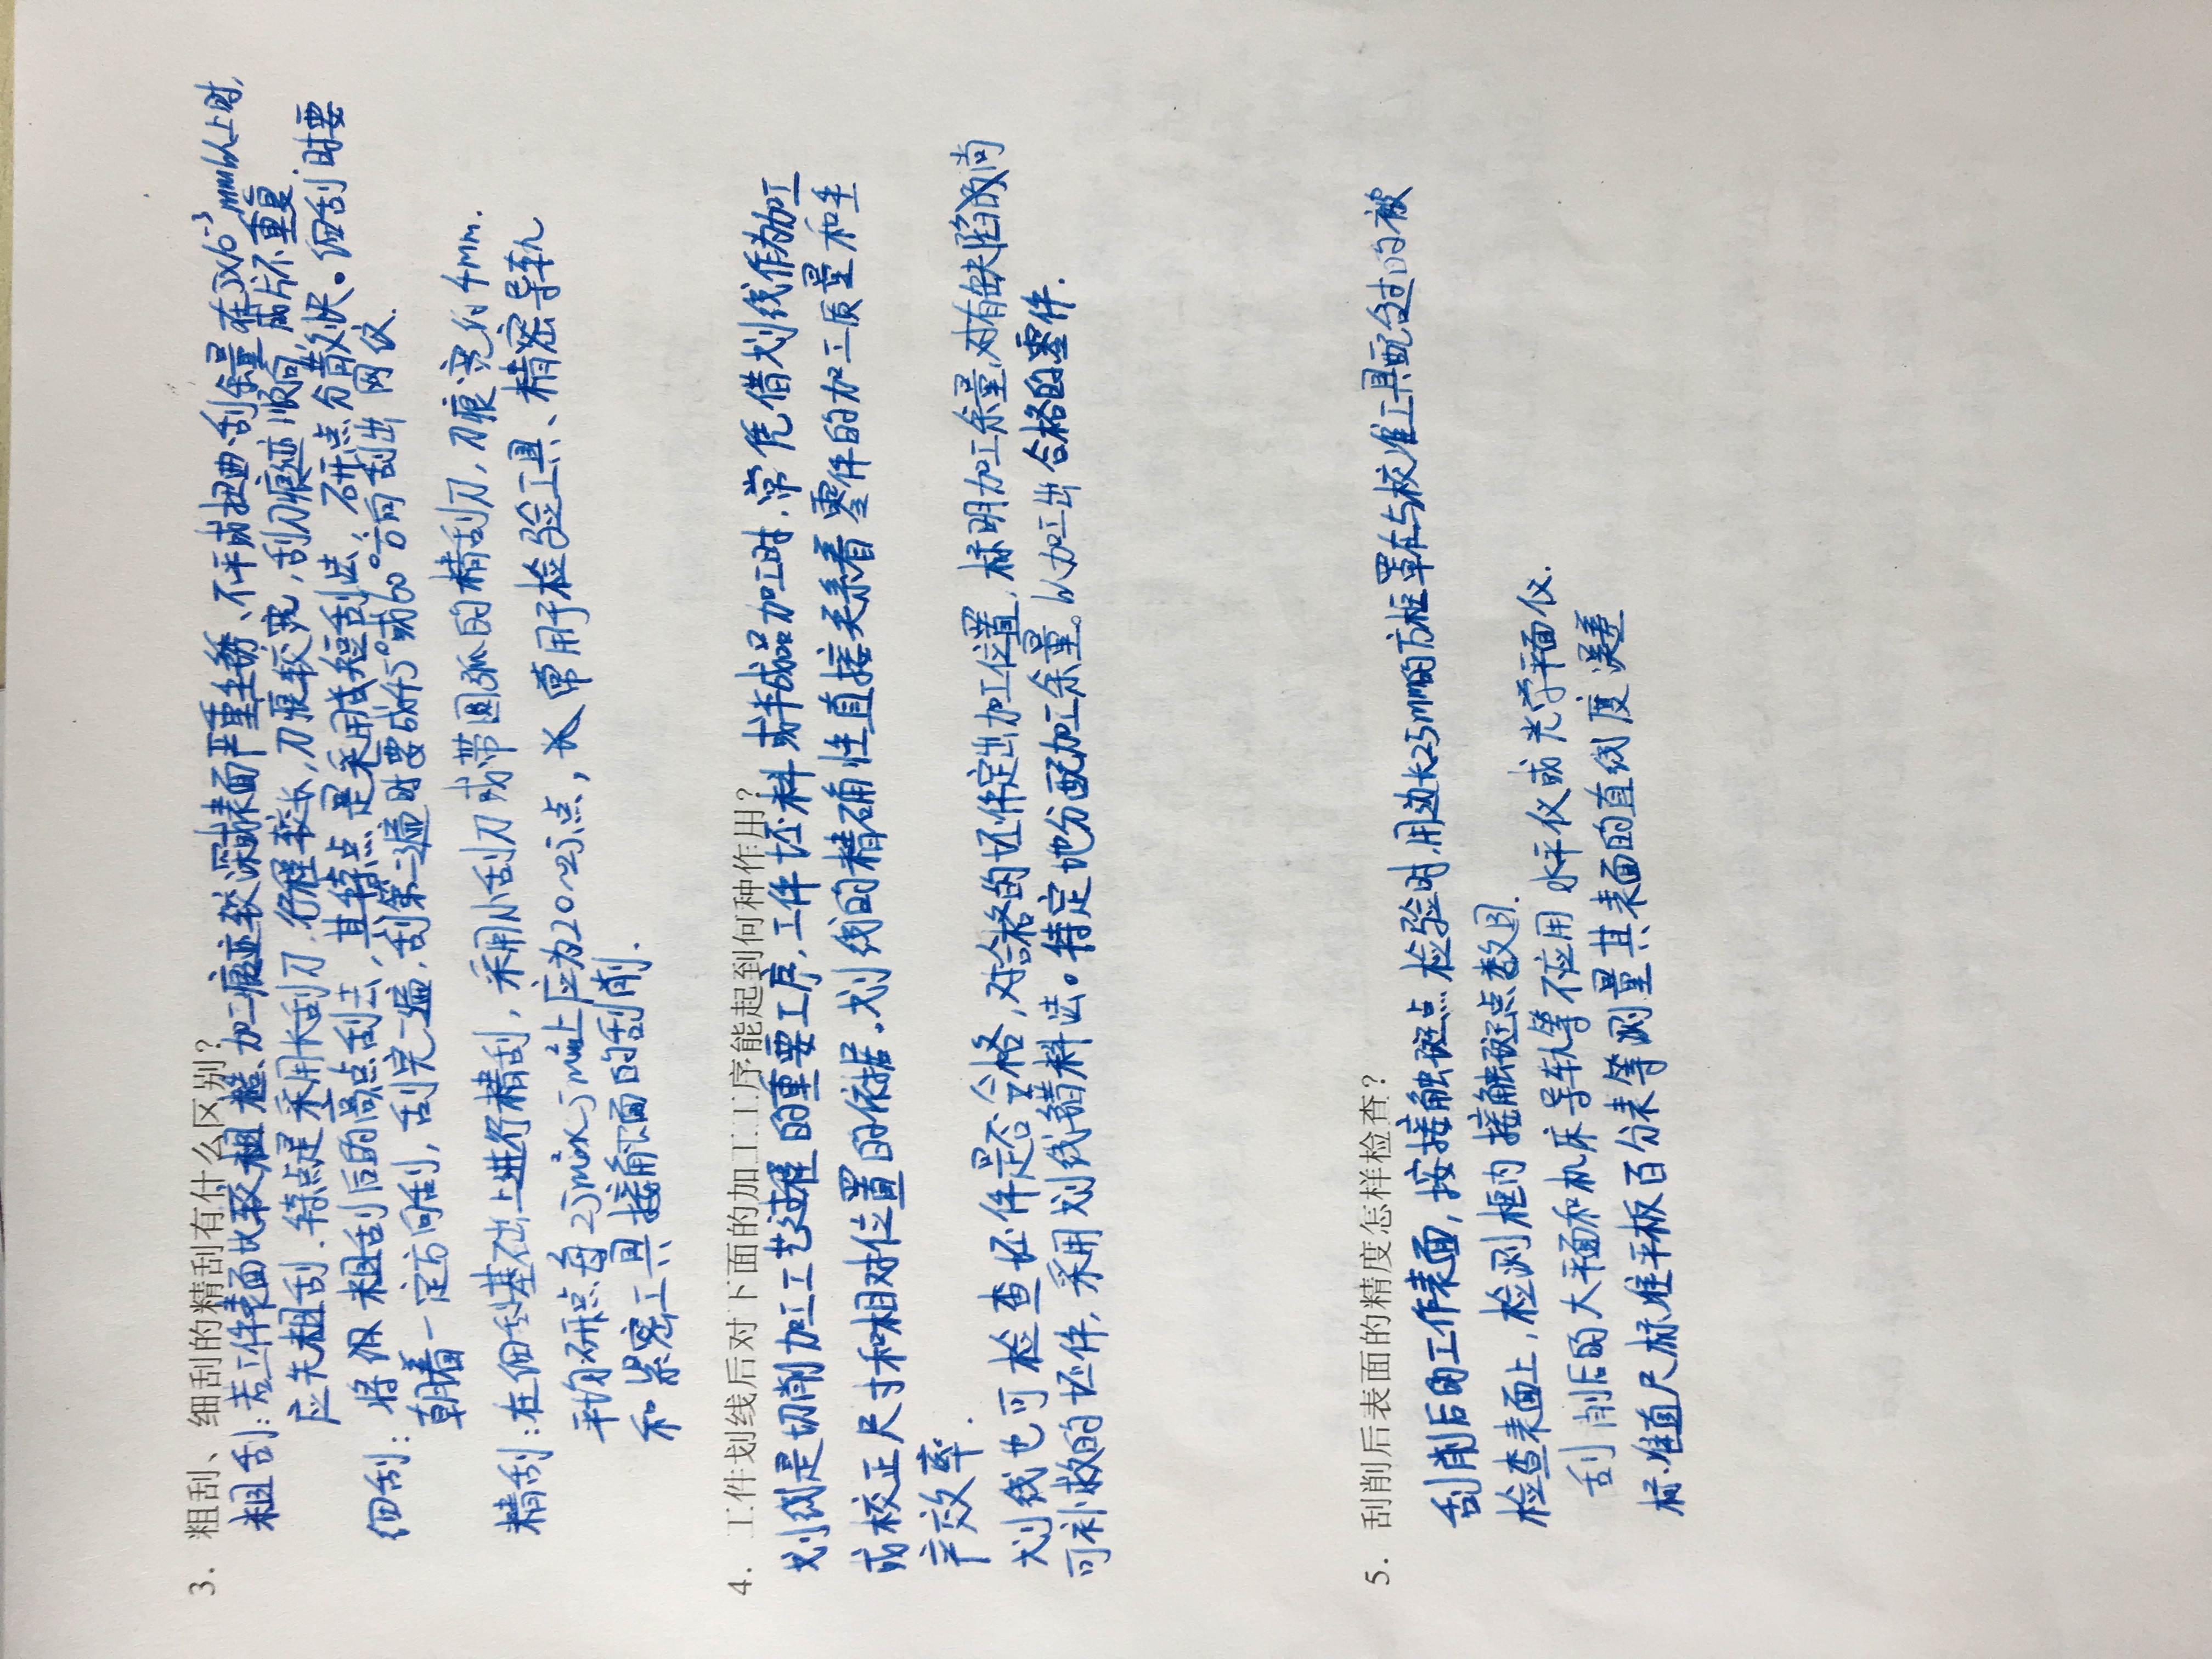 3. 粗刮、细刮的精刮有什么区别?
粗刮:若工件表面比较粗糙、加工痕迹较深或表面严重生锈、不平或扭曲,刮余量在 mm以上时,
应先粗刮.特点是采用长刮刀.行程较长,刀痕较宽,刮刀痕迹顺向,成片不重复.
细刮:将 粗刮后的高点刮去,其特点是采用 短刮法,研点分散快。细刮时要
朝着一定方向刮,刮完一遍,刮第二遍时要成45°或60°方向刮出网纹.
精刮:在细刮基础上进行精刮,采用小刮刀或带圆弧的精刮刀,刀痕宽约4mm.
平均研点每25mm×25mm上应为20~25点, 常用于检验工具、精密导轨
和 密工具接触面的刮削.
4. 工件划线后对下面的加工工序能起到何种作用?
划线是切削加工工艺过程的重要工序,工件坯料或半成品加工时.常凭借划线作为加工
或校正尺寸和相对位置的依据.划线的精确性直接关系着零件的加工质量和生
产效率.
划线也可检查坯件是否合格,对合格的坯件定出加工位置,标明加工余量,对有缺陷的尚
可补救的坯件,采用划线错料法。特定地分配加工余量。以加工出合格的零件.
5. 刮削后表面的精度怎样检查?
刮削后的工作表面,按接触斑点检验时,用边长25mm的方框罩在与校准工具配合过的被
检查表面上,检测框内接触斑点数目.
刮削后的大平面和机床导轨等不应用水平仪或光学平面仪.
标准直尺标准平板百分表等测量其表面的直线度误差